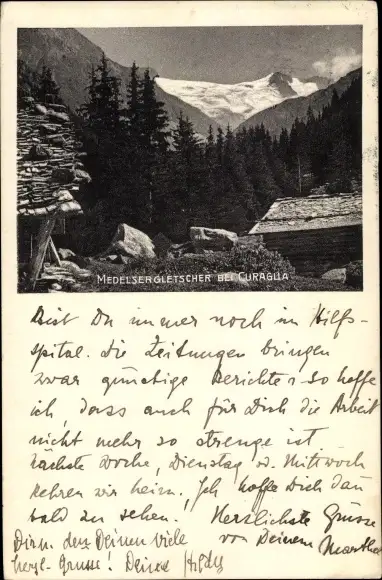 MEDELSERGLETSCHER BEI CURAGLIA
Bist Du immer noch im Hilfs-
spital. Die Zeitungen bringen
zwar günstige Berichte & so hoffe
ich, dass auch für Dich die Arbeit
nicht mehr so strenge ist
nächste Woche, Dienstag od. Mittwoch
kehren wir heim. Ich hoffe Dich dan
bald zu sehen. Herzlichste Grüsse
von Deinem Martha
Dir u. den Deinen viele
herzl. Grüsse! Deine